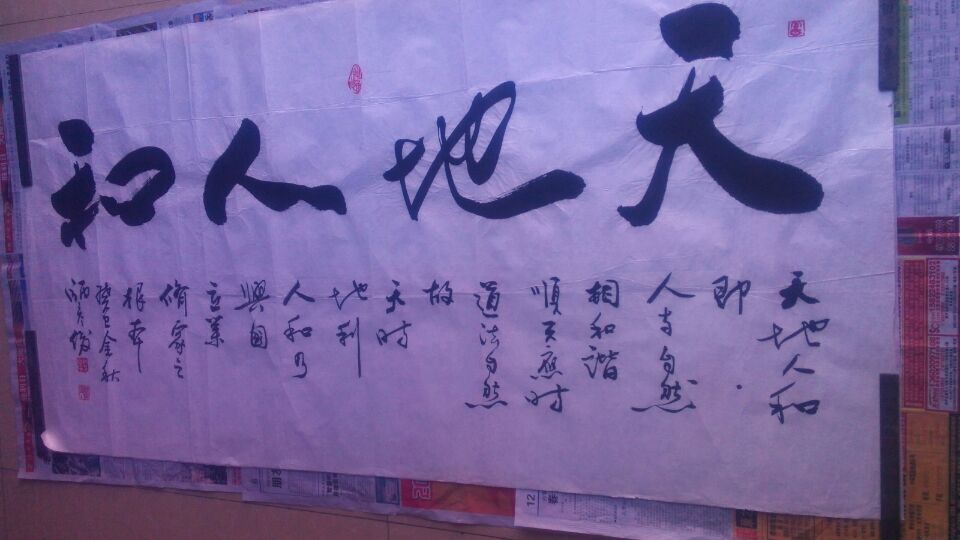 天地人和
天地人和
即
人与自然
相和谐
順天應时
道法自然
故
天时
地利
人和乃
興國
立業
脩家之
根本
癸巳金秋